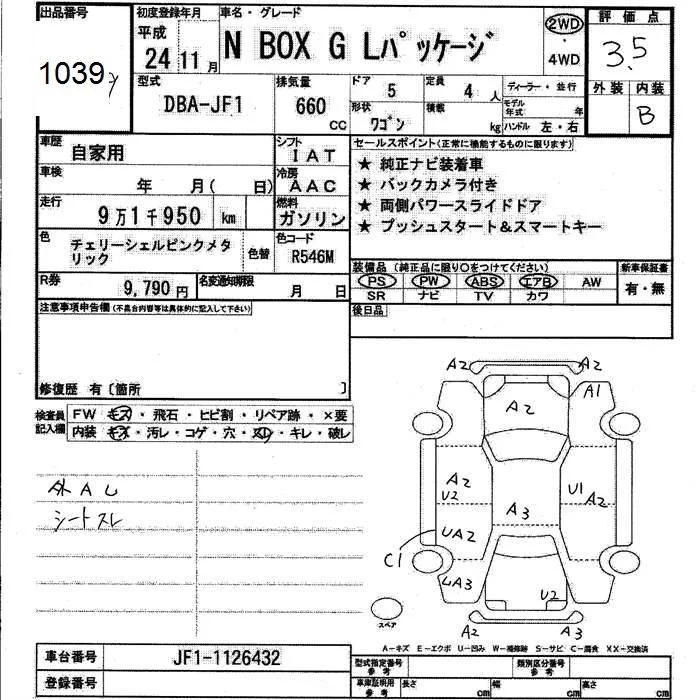 出品番号
1039
初度登録年月
平成
24 11 月
車名・グレード
N BOX G Lパッケージ
2WD
・
4WD
評価点
3.5
外装 内装
B
型式
DBA-JF1
排気量
660
CC
ドア 5
定員 4 人
形状
ワゴン
積載
kg
ディーラー・並行
モデル
年式 年
ハンドル 左・右
車歴
自家用
シフト
IAT
車検
年 月( 日)
冷房
AAC
走行
9万1千950 km
燃料
ガソリン
色
チェリーシェルピンクメタ
リック
色替
色コード
R546M
R券
9,790 円
名変通知期限
月 日
セールスポイント(正常に機能するものに限ります)
★ 純正ナビ装着車
★ バックカメラ付き
★ 両側パワースライドドア
★ プッシュスタート&スマートキー
装備品 (純正品に限り○をつけてください)
PS PW ABS エアB AW
SR ナビ TV カワ
新車保証書
有・無
後日品
注意事項申告欄(不具合内容等は具体的に記入して下さい)
修復歴 有〔箇所 〕
検査員
記入欄
FW キズ・飛石・ヒビ割・リペア跡・×要
内装 キズ・汚レ・コゲ・穴・スレ・キレ・破レ
外 A U
シートスレ
A2 A2
A1
A2
A2
U2
U1
A2
A3
UA2
C1
UA3
U2
A2 A3
スペア
A-キズ E-エクボ U-凹み W-補修跡 S-サビ C-腐食 XX-交換済
車台番号
JF1-1126432
登録番号
型式指定番号
参考
類別区分番号
参考
車庫証明用
参考
長さ cm
幅 cm
高さ cm